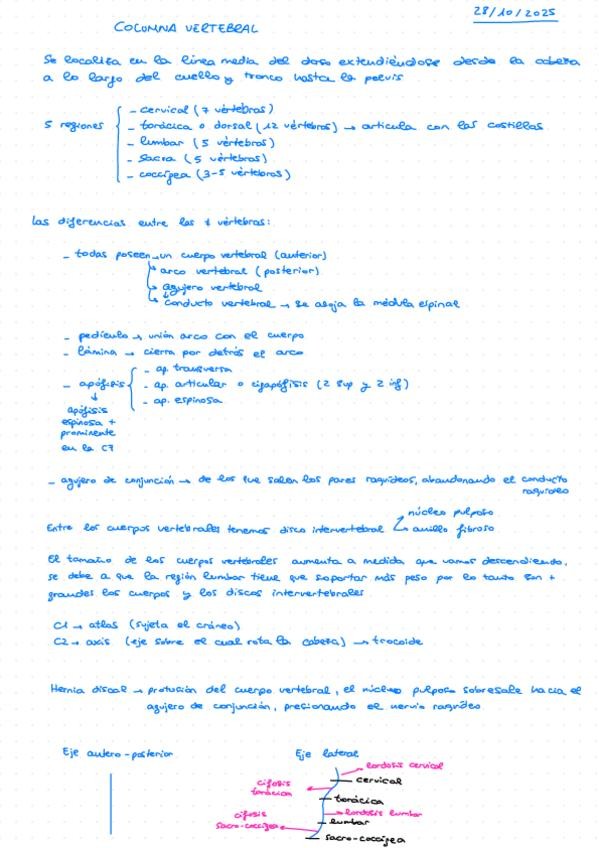 28/10/2025
COLUMNA VERTEBRAL
Se localiza en la línea media del dorso extendiéndose desde la cabeza
a lo largo del cuello y tronco hasta la pelvis
5 regiones
- cervical (7 vértebras)
- torácica o dorsal (12 vértebras) → articula con las costillas
- lumbar (5 vértebras)
- sacra (5 vértebras)
- coccígea (3-5 vértebras)
Las diferencias entre las ≠ vértebras:
- todas poseen → un cuerpo vertebral (anterior)
→ arco vertebral (posterior)
→ agujero vertebral
→ conducto vertebral → se aloja la médula espinal
- pedículo → unión arco con el cuerpo
- lámina → cierra por detrás el arco
- apófisis
- ap. transversa
- ap. articular o cigapófisis (2 sup y 2 inf)
- ap. espinosa
↓
apófisis
espinosa +
prominente
en la C7
- agujero de conjunción → de los que salen los pares raquídeos, abandonando el conducto
raquídeo
Entre los cuerpos vertebrales tenemos disco intervertebral
núcleo pulposo
anillo fibroso
El tamaño de los cuerpos vertebrales aumenta a medida que vamos descendiendo,
se debe a que la región lumbar tiene que soportar más peso por lo tanto son +
grandes los cuerpos y los discos intervertebrales
C1 → atlas (sujeta el cráneo)
C2 → axis (eje sobre el cual rota la cabeza) → trocoide
Hernia discal → protusión del cuerpo vertebral, el núcleo pulposo sobresale hacia el
agujero de conjunción, presionando el nervio raquídeo
Eje antero-posterior
Eje lateral
lordosis cervical
cervical
cifosis
torácica
torácica
lordosis lumbar
cifosis
sacro-coccígea
lumbar
sacro-coccígea